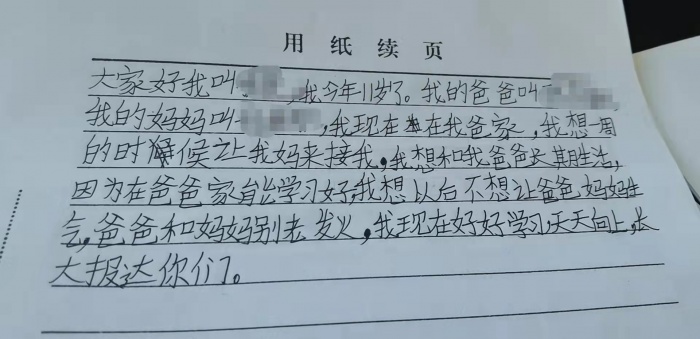 用纸续页
大家好我叫,我今年11岁了。我的爸爸叫
我的妈妈叫,我现在在我爸家,我想一周
的时候让我妈来接我,我想和我爸爸长期生活,
因为在爸爸家能学习好,我想以后不想让爸爸妈妈生
气,爸爸和妈妈别老发火,我现在好好学习,天天向上,长
大报达你们了。